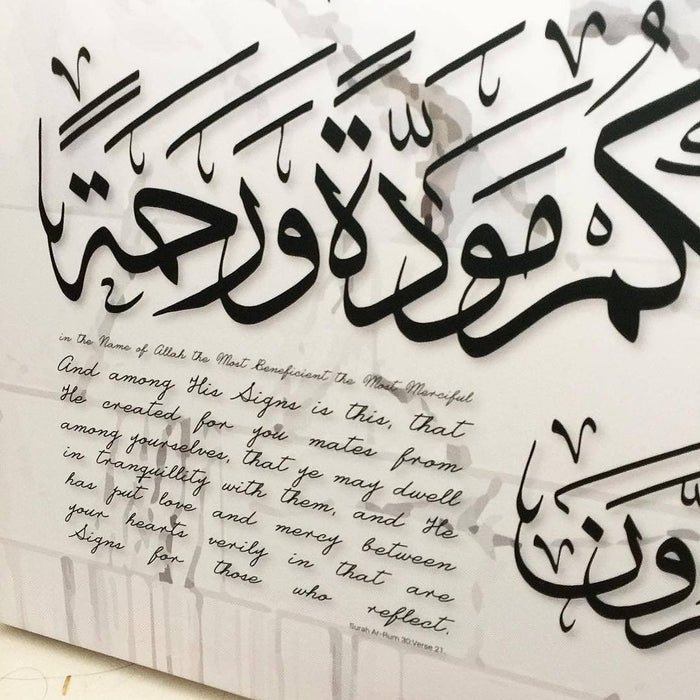 كُمْ مَوَدَّةً وَرَحْمَةً
in the Name of Allah the Most Beneficient the Most Merciful
And among His Signs is this, that
He created for you mates from
among yourselves, that ye may dwell
in tranquillity with them, and He
has put love and mercy between
your hearts verily in that are
Signs for those who reflect.
Surah Ar-Rum 30:Verse 21
رُونَ